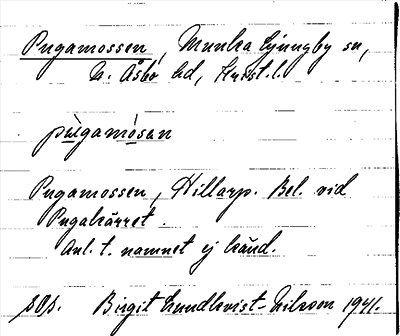 Pugamossen, Munka Ljungby sn,
N. Åsbo hd, Krist. l.
pùgamòsan
Pugamossen, Hillarp. Bel. vid
Pugakärret.
Anl. t. namnet ej känd.
sOs. Birgit Lundkvist-Nilsson 1941.